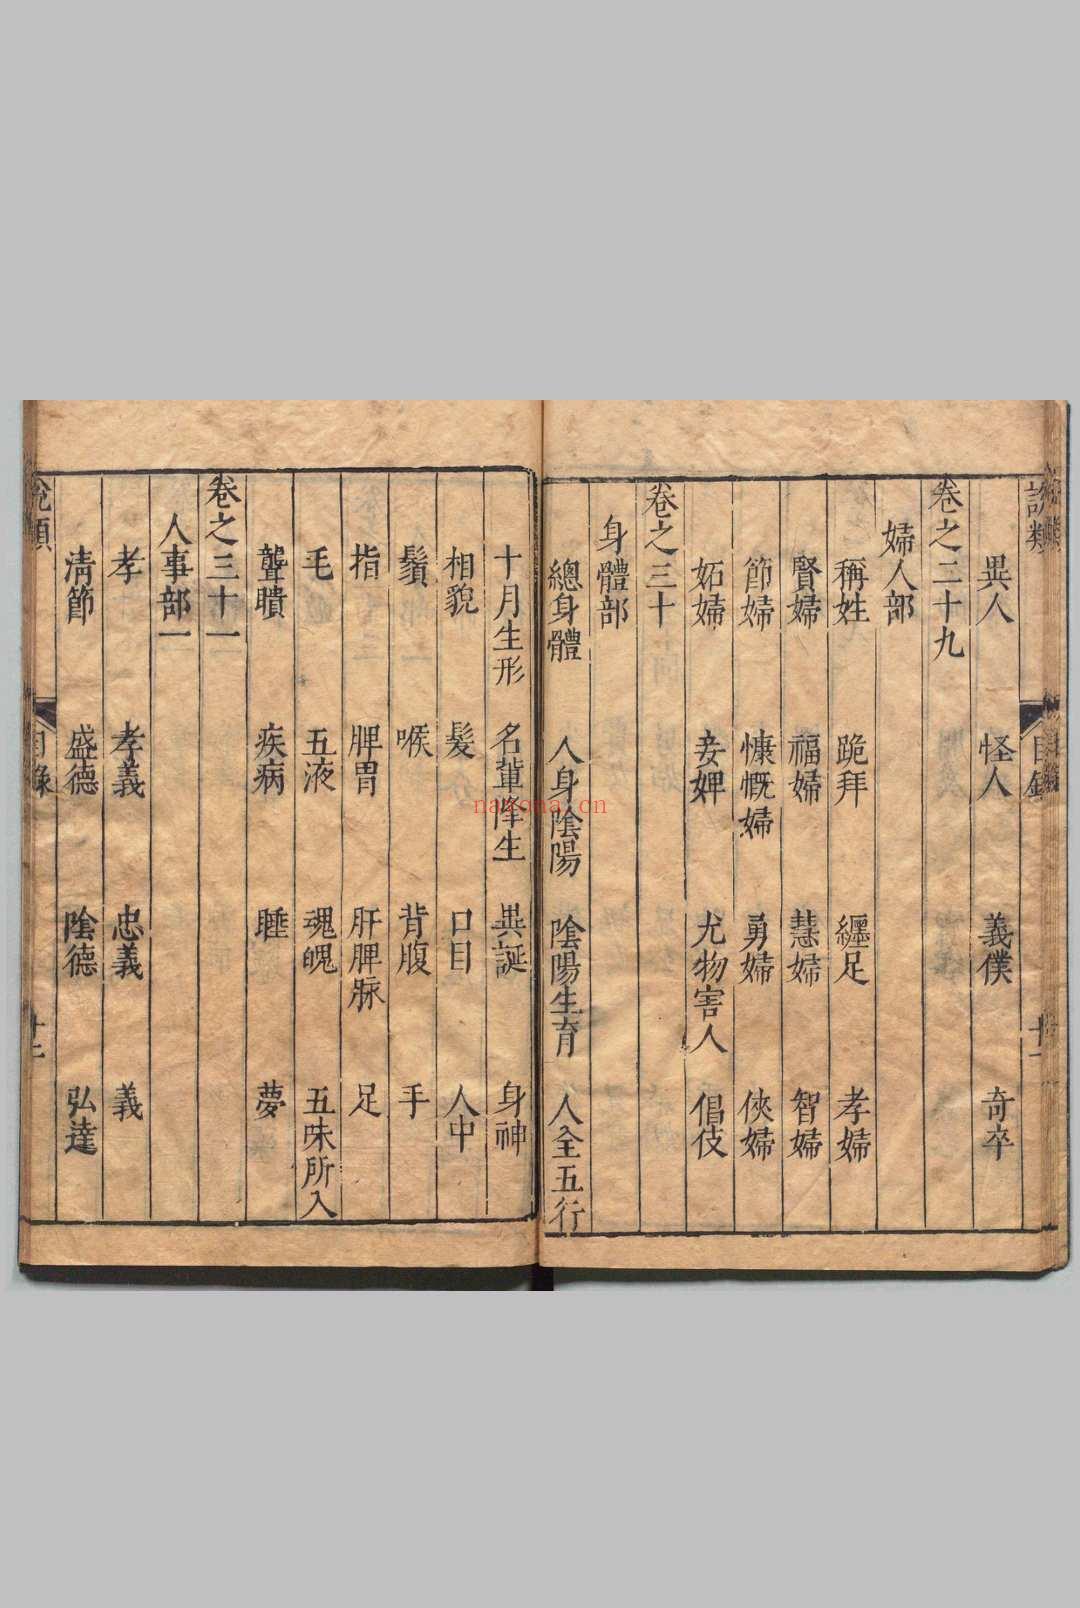 異人 怪人 義僕 奇卒
卷之二十九
婦人部
稱姓 跪拜 纏足 孝婦
賢婦 福婦 慧婦 智婦
節婦 慷慨婦 勇婦 俠婦
妬婦 妾婢 尤物害人 倡伎
卷之三十
身體部
總身體 人身陰陽 陰陽生育 人全五行
十月生形 名輩降生 異誕 身神
相貌 髮 口目 人中
鬚 喉 背腹 手
指 脾胃 肝脾脉 足
毛 五液 魂魄 五味所入
聾聵 疾病 睡 夢
卷之三十一
人事部一
孝 孝義 忠義 義
清節 盛德 陰德 弘達
說類 目錄
nayona.cn